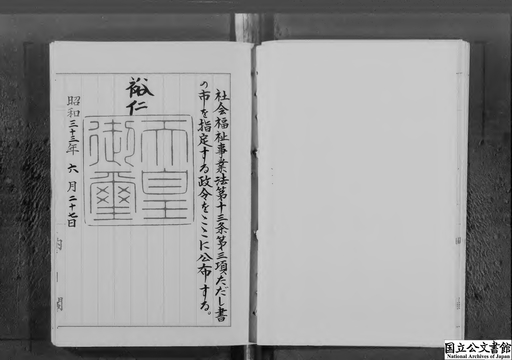 社会福祉事業法第十三条第三項ただし書
の市を指定する政令をここに公布する。
裕仁
天皇
御璽
昭和三十三年六月二十七日
国立公文書館
National Archives of Japan